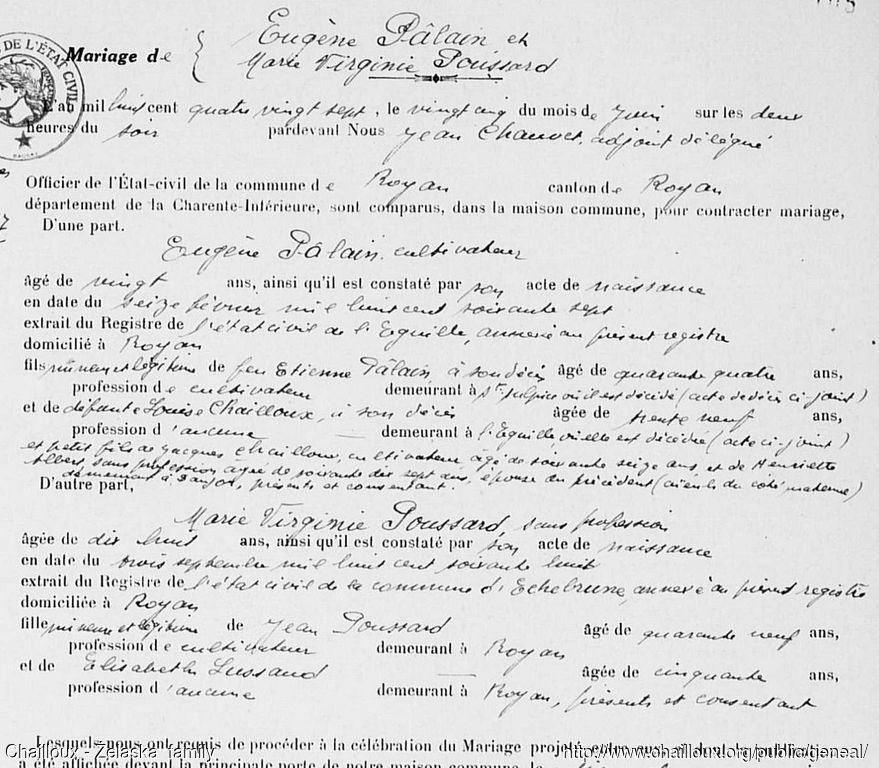 Eugène Pâlain et
Mariage de
Marie Virginie Poussard
DE L'ÉTAT CIVIL
L'an mil huit cent quatre vingt sept, le vingt cinq du mois de Juin sur les deux
heures du soir pardevant Nous Jean Chauvet, adjoint délégué
Officier de l'État-civil de la commune de Royan canton de Royan
département de la Charente-Inférieure, sont comparus, dans la maison commune, pour contracter mariage,
D'une part.
Eugène Pâlain, cultivateur
âgé de vingt ans, ainsi qu'il est constaté par son acte de naissance
en date du seize février mil huit cent soixante sept
extrait du Registre de l'état civil de l'Eguille, annexé au présent registre
domicilié à Royan
fils mineur et légitime de feu Etienne Pâlain à son décès âgé de quarante quatre ans,
profession de cultivateur demeurant à St Sulpice où il est décédé (acte de décès ci-joint)
et de défunte Louise Chailloux, à son décès âgée de trente neuf ans,
profession d'aucune demeurant à l'Eguille, où elle est décédée (acte ci-joint)
et petit fils de Jacques Chailloux, cultivateur, âgé de soixante seize ans, et de Henriette
Albert, sans profession, âgée de soixante dix sept ans, épouse du précédent (aïeuls du coté maternel)
demeurant à Saujon, présents et consentant.
D'autre part,
Marie Virginie Poussard, sans profession
âgée de dix huit ans, ainsi qu'il est constaté par son acte de naissance
en date du trois septembre mil huit cent soixante huit
extrait du Registre de l'état civil de la commune d'Echebrune, annexé au présent registre
domiciliée à Royan
fille mineure et légitime de Jean Poussard âgé de quarante neuf ans,
profession de cultivateur demeurant à Royan
et de Elisabeth Lussaud âgée de cinquante ans,
profession d'aucune demeurant à Royan, présents et consentant
Lesquels nous ont requis de procéder à la célébration du Mariage projeté entre eux et dont la publication
a été affichée devant la principale porte de notre maison commune, le
Chailloux - Zelaska family
http://www.chailloux.org/public/geneal/